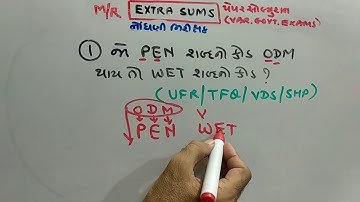 M/R EXTRA SUMS પેપર સોલ્યુશન
(VAR. GOVT. EXAMS)
① જો PEN શબ્દનો કોડ ODM
થાય તો WET શબ્દનો કોડ ?
(UFR/TFQ/VDS/SMP)
ODM V
PEN WET